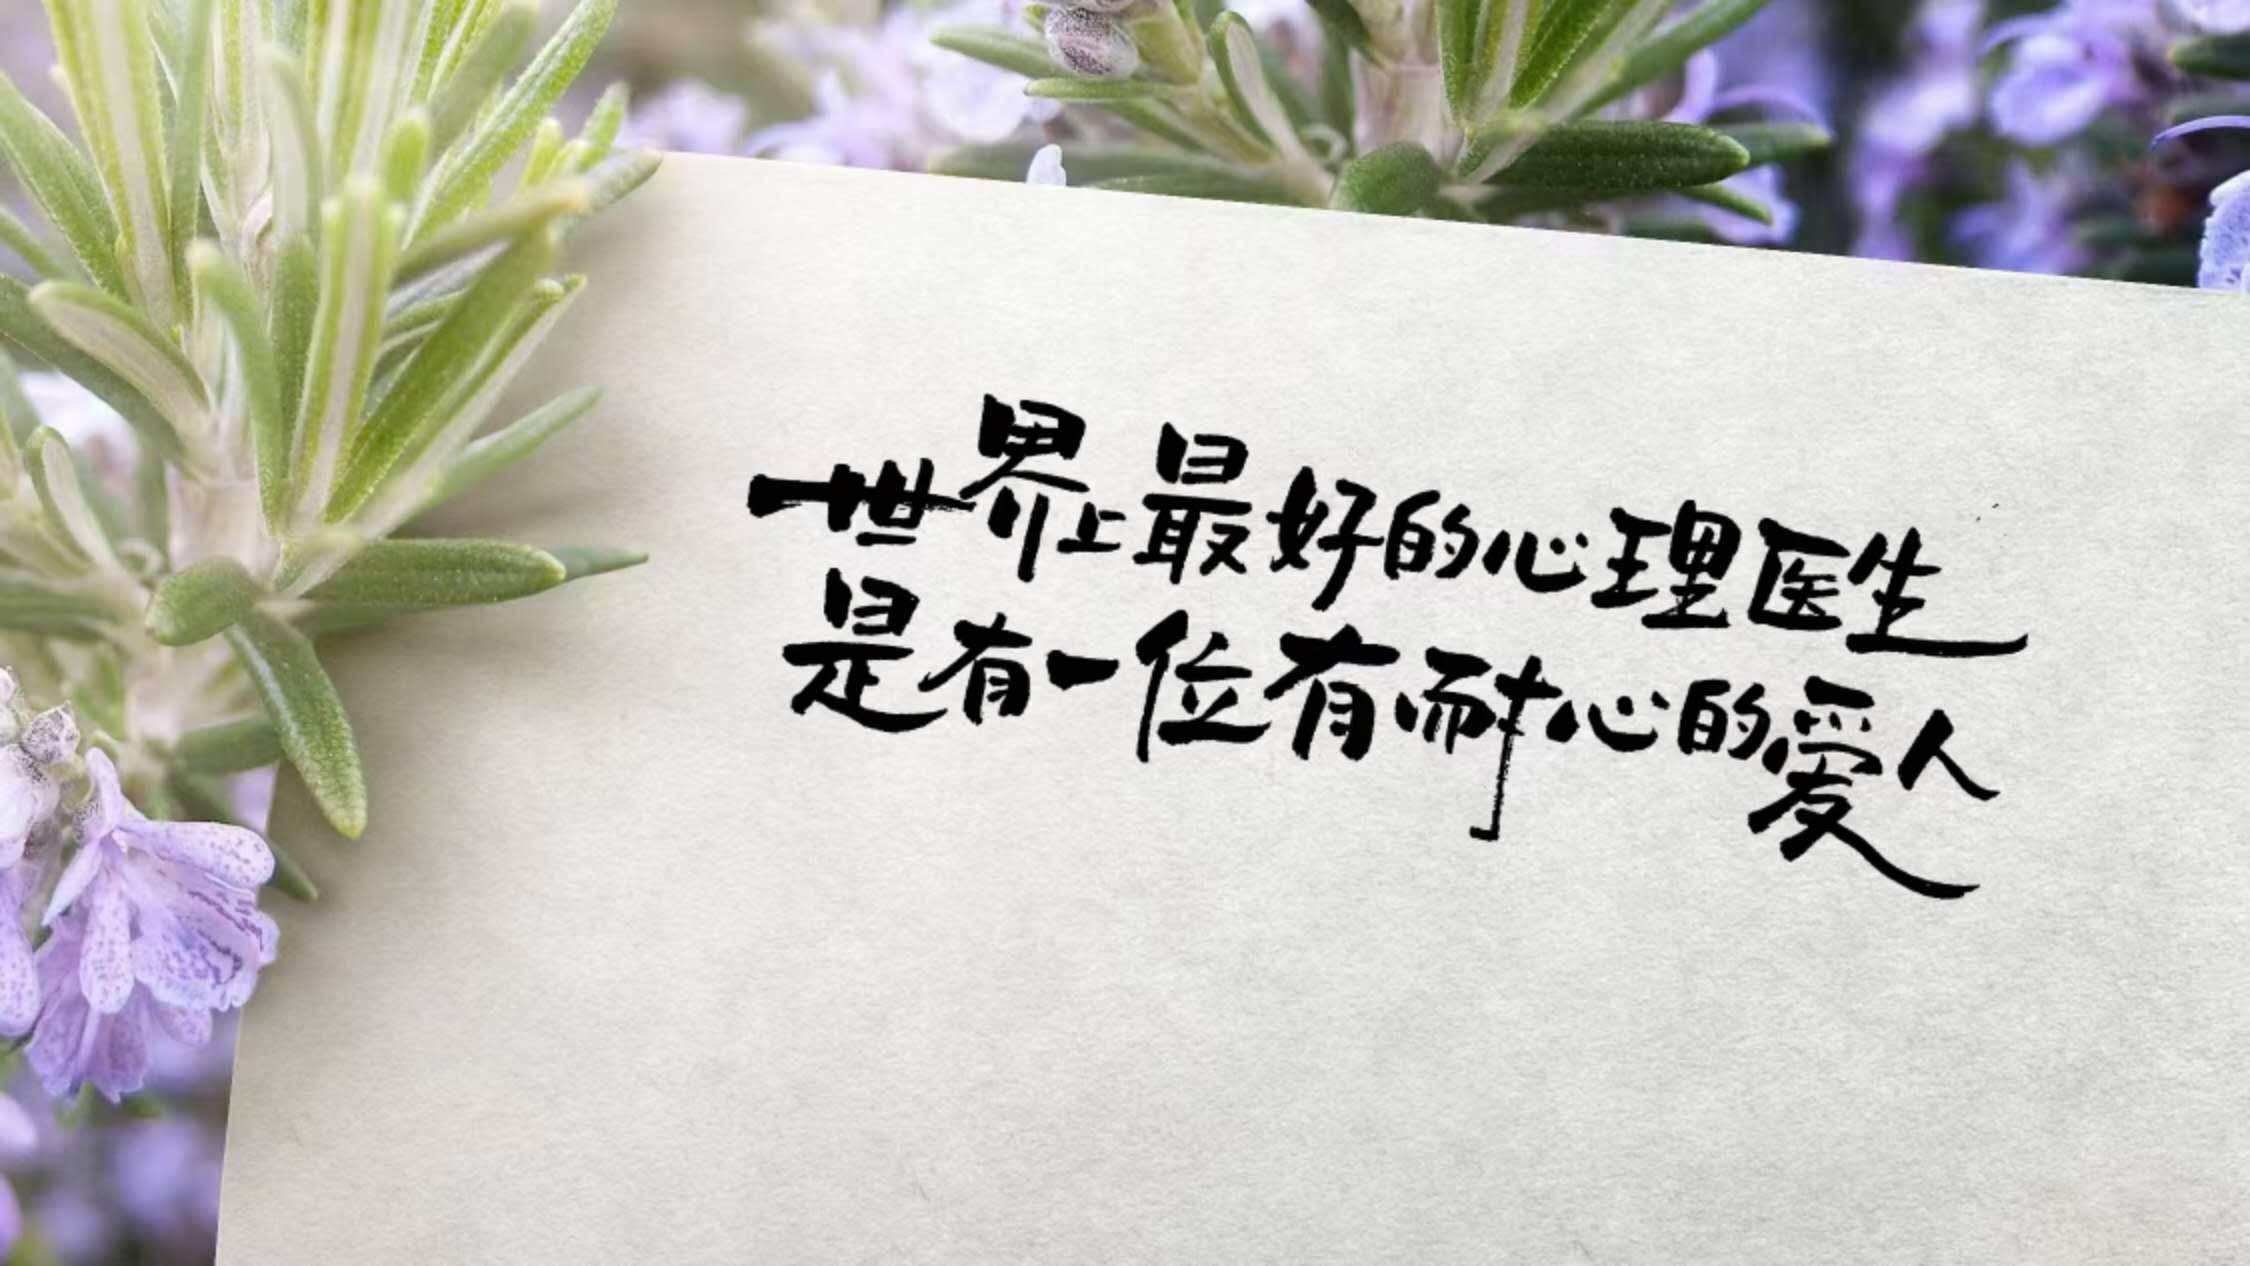 世界上最好的心理医生
是有一位有耐心的爱人